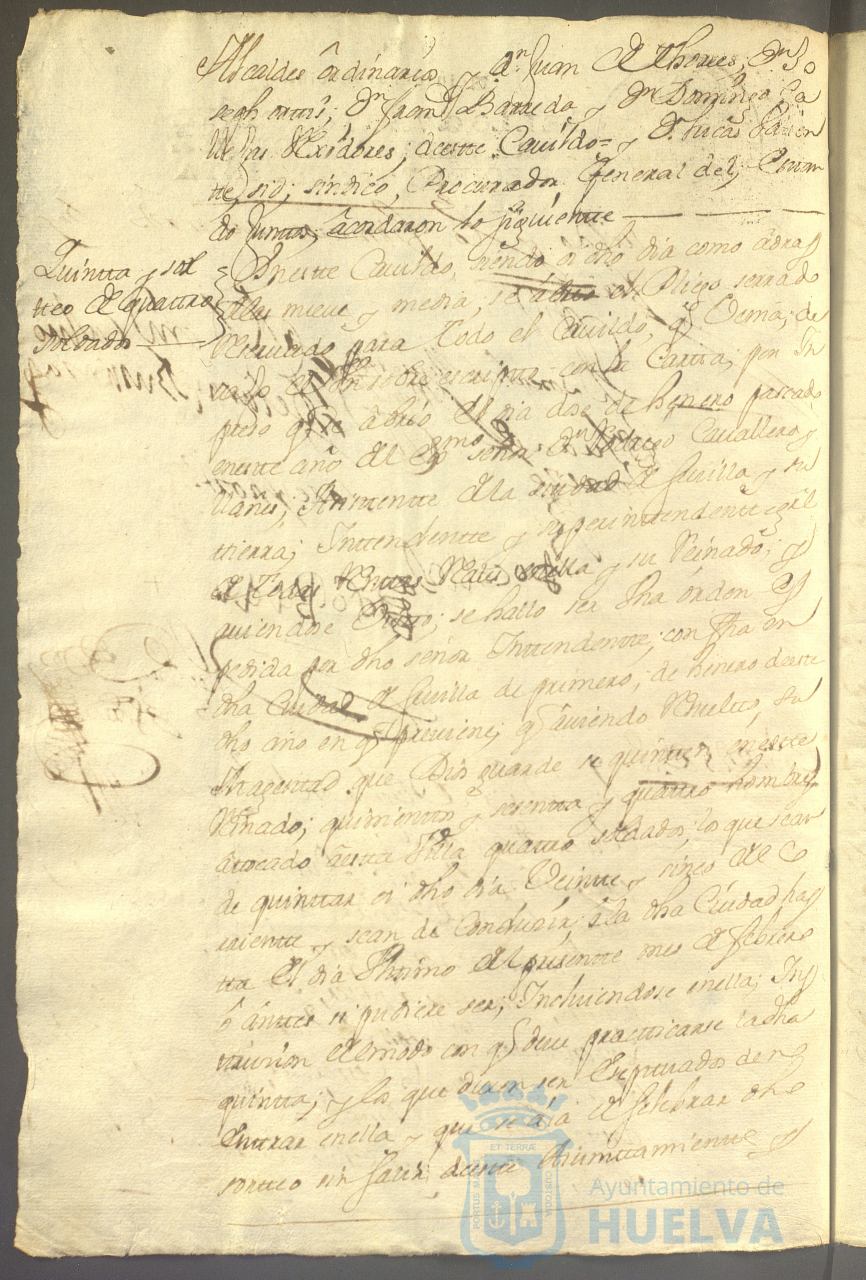 Alcaldes ordinarios y Dn Juan de Thorres, Dn Jo
seph ortis; Dn Fran Barreda y Dn Domingo Ca
Rexidores, deeste Cavildo= y D. Lucas
sindico, Procurador General del, Estan
do Juntos, acordaron lo siguiente
Quintta y sor
tteo de quattro
soldados
Eneste Cavildo, siendo oi dho dia como a ora
delas nueve y media, se abrio el Pliego serrado
para todo el Cavildo, q
sobre escripta con la Cartta, por
preso q se abrio el dia dose de henero pasado
eneste año del Exmo señor Dn Cavallero
llanes, Asistente de la ciudad de sevilla y su
tierra; Inttendentte y superinttendente
de todas Renttas Reales della y su Reinado;
se hallo ser dha orden
pedida por dho señor Inttendente, con fha en
dha Ciudad de sevilla de primero, de henero deeste
dho año en q previene, q aviendo Resuelto, su
Magestad que Dios guarde se quintten eneste
Reinado; quinienttos y sesentta y quattro hombres
a tocado a esta Villa quattro soldados, lo que sean
de quinttar oi dho dia Veintte y sinco del co
rrientte y sean de Condusir, a la dha Ciudad has
tta el dia Ultimo del presente mes de febrero
o anttes si pudiere ser; Incluiendose enella; Ins
truccion del modo con q deve practticarse la dha
quintta; y los que deven ser Exsepttuados de
Enttrar enella y que se a de selebrar dho
sortteo sin salir deeste Aiunttamientto y
PORTUS MARIS
ET TERRÆ
CUSTODIA
Ayuntamiento de
HUELVA